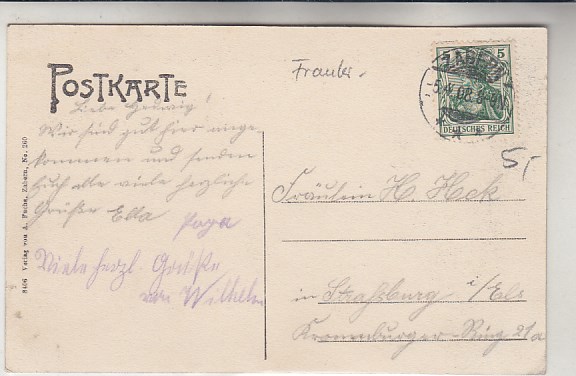 POSTKARTE
Liebe Hedwig!
Wir sind gut hier ange
kommen und senden
Euch alle viele herzliche
Grüße Ella
Papa
Viele herzl. Grüße
von Wilhelm
8406 Verlag von A. Fuchs, Zabern, No. 260
ZABERN
5
DEUTSCHES REICH
5,-
Fräulein H. Heck
in Straßburg i/Els
Kronenburger-Ring 21a